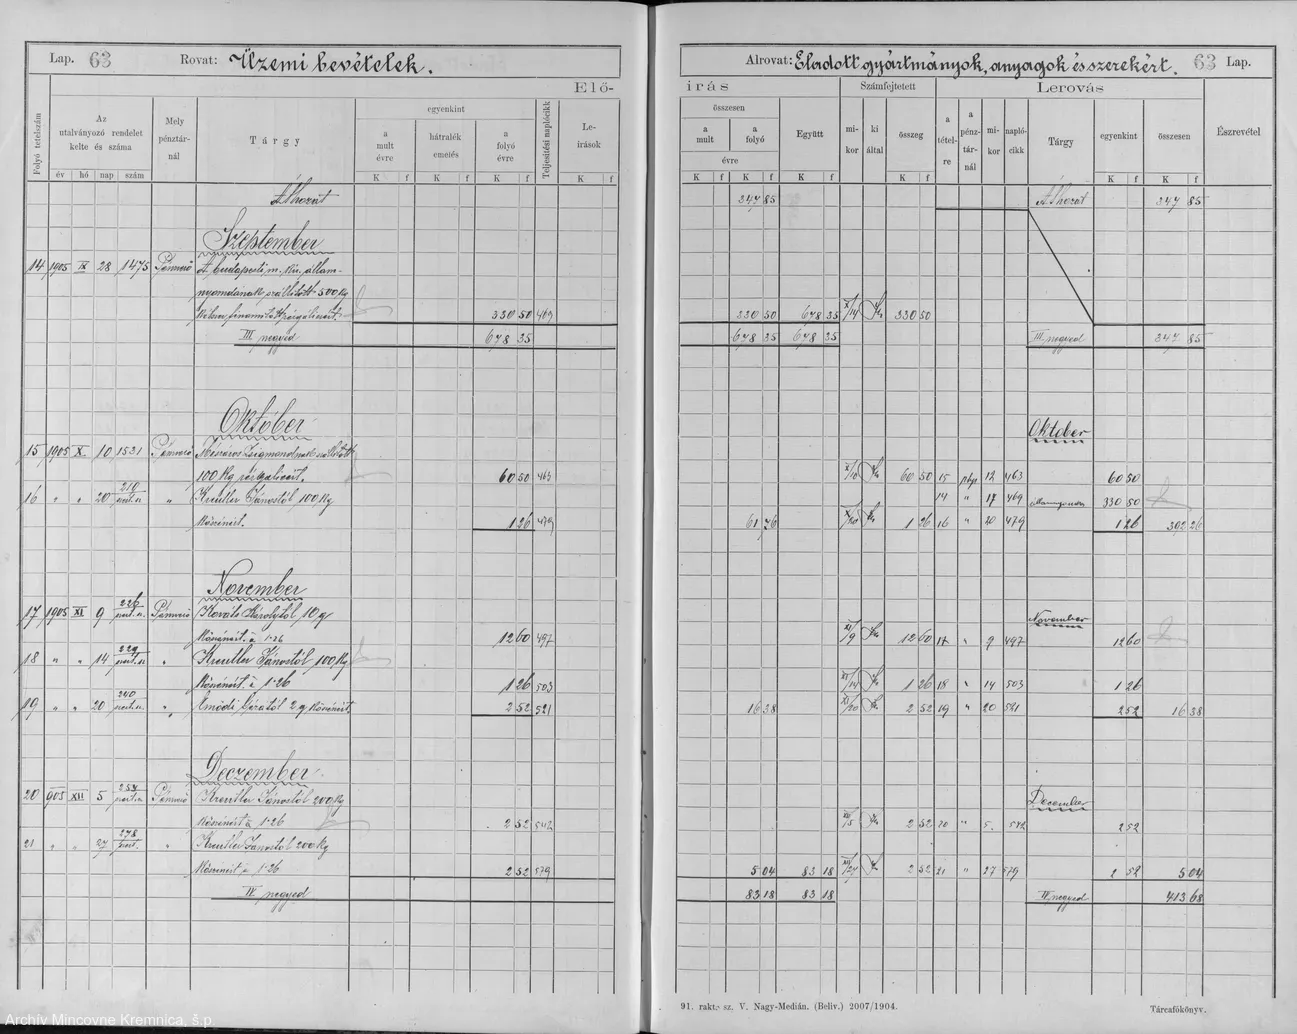 Lap. 63 Rovat: Üzemi bevételek.
Elő-
Folyó tételszám
Az utalványozó rendelet kelte és száma
év hó nap szám
Mely pénztár-nál
Tárgy
egyenkint
a mult évre
hátralék emelés
a folyó évre
Teljesítési naplócikk
Le-írások
K f K f K f K f
Áthozat
Szeptember
14 1905 IX 28 1475 A budapesti m. kir. állam-
nyomdának szállitott 500 Kg
330 50 469
III negyed 678 35
Október
15 1905 X. 10 1531
100 Kg 60 50 463
16 " " 20 210 " Kreutler Jánostól 100 Kg
Kőszénért. 1 26 479
November
17 1905 XI 9 226 Kováts Károlytól 10 q
Kőszénért à 1·26 12 60 497
18 " " 14 229 " Kreutler Jánostól 100 Kg
Kőszénért à 1·26 1 26 503
19 " " 20 240 " 2 q Kőszénért. 2 52 521
Deczember
20 905 XII 5 254 Kreutler Jánostól 200 Kg
Kőszénért à 1·26 2 52 542
21 " " 27 278 " Kreutler Jánostól 200 Kg
Kőszénért à 1·26 2 52 579
IV negyed
Alrovat: Eladott gyártmányok, anyagok és szerekért. 63 Lap.
írás
Számfejtetett
Lerovás
Észrevétel
összesen
a mult a folyó
évre
Együtt
mi-kor
ki által
összeg
a tétel-re
a pénz-tár-nál
mi-kor
napló-cikk
Tárgy
egyenkint
összesen
K f K f K f K f K f K f
347 85 Áthozat 347 85
330 50 678 35 X/14 330 50
678 35 678 35 III negyed 347 85
Október
X/10 60 50 15 12 463 60 50
14 " 17 469 330 50
61 76 X/20 1 26 16 " 20 479 1 26 392 26
November
XI/9 12 60 17 " 9 497 12 60
XI/14 1 26 18 " 14 503 1 26
16 38 XI/20 2 52 19 " 20 521 2 52 16 38
December
XII/5 2 52 20 " 5. 542 2 52
5 04 83 18 XII/27 2 52 21 " 27 579 2 52 5 04
83 18 83 18 IV negyed 413 68
91. rakt. sz. V. Nagy-Medián. (Beliv.) 2007/1904.
Tárcafőkönyv.
Archív Mincovne Kremnica, š.p.